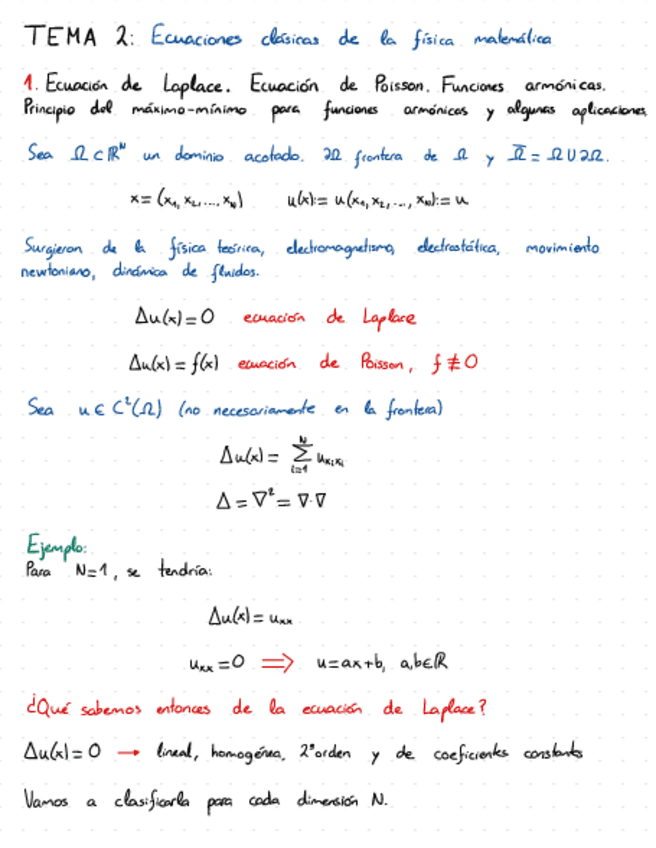 TEMA 2: Ecuaciones clásicas de la física matemática
1. Ecuación de Laplace. Ecuación de Poisson. Funciones armónicas.
Principio del máximo-mínimo para funciones armónicas y algunas aplicaciones
Sea Ω⊂ℝᴺ un dominio acotado. ∂Ω frontera de Ω y Ω̅ = Ω∪∂Ω.
x = (x₁, x₂, ..., x_N) u(x):= u(x₁, x₂, ..., x_N):= u
Surgieron de la física teórica, electromagnetismo, electrostática, movimiento
newtoniano, dinámica de fluidos.
Δu(x) = 0 ecuación de Laplace
Δu(x) = f(x) ecuación de Poisson, f ≢ 0
Sea u ∈ C²(Ω) (no necesariamente en la frontera)
Δu(x) = ∑_{i=1}^{N} u_{x_i x_i}
Δ = ∇² = ∇·∇
Ejemplo:
Para N=1, se tendría:
Δu(x) = u_{xx}
u_{xx} = 0 ⟹ u = ax+b, a,b∈ℝ
¿Qué sabemos entonces de la ecuación de Laplace?
Δu(x) = 0 → lineal, homogénea, 2º orden y de coeficientes constants
Vamos a clasificarla para cada dimensión N.